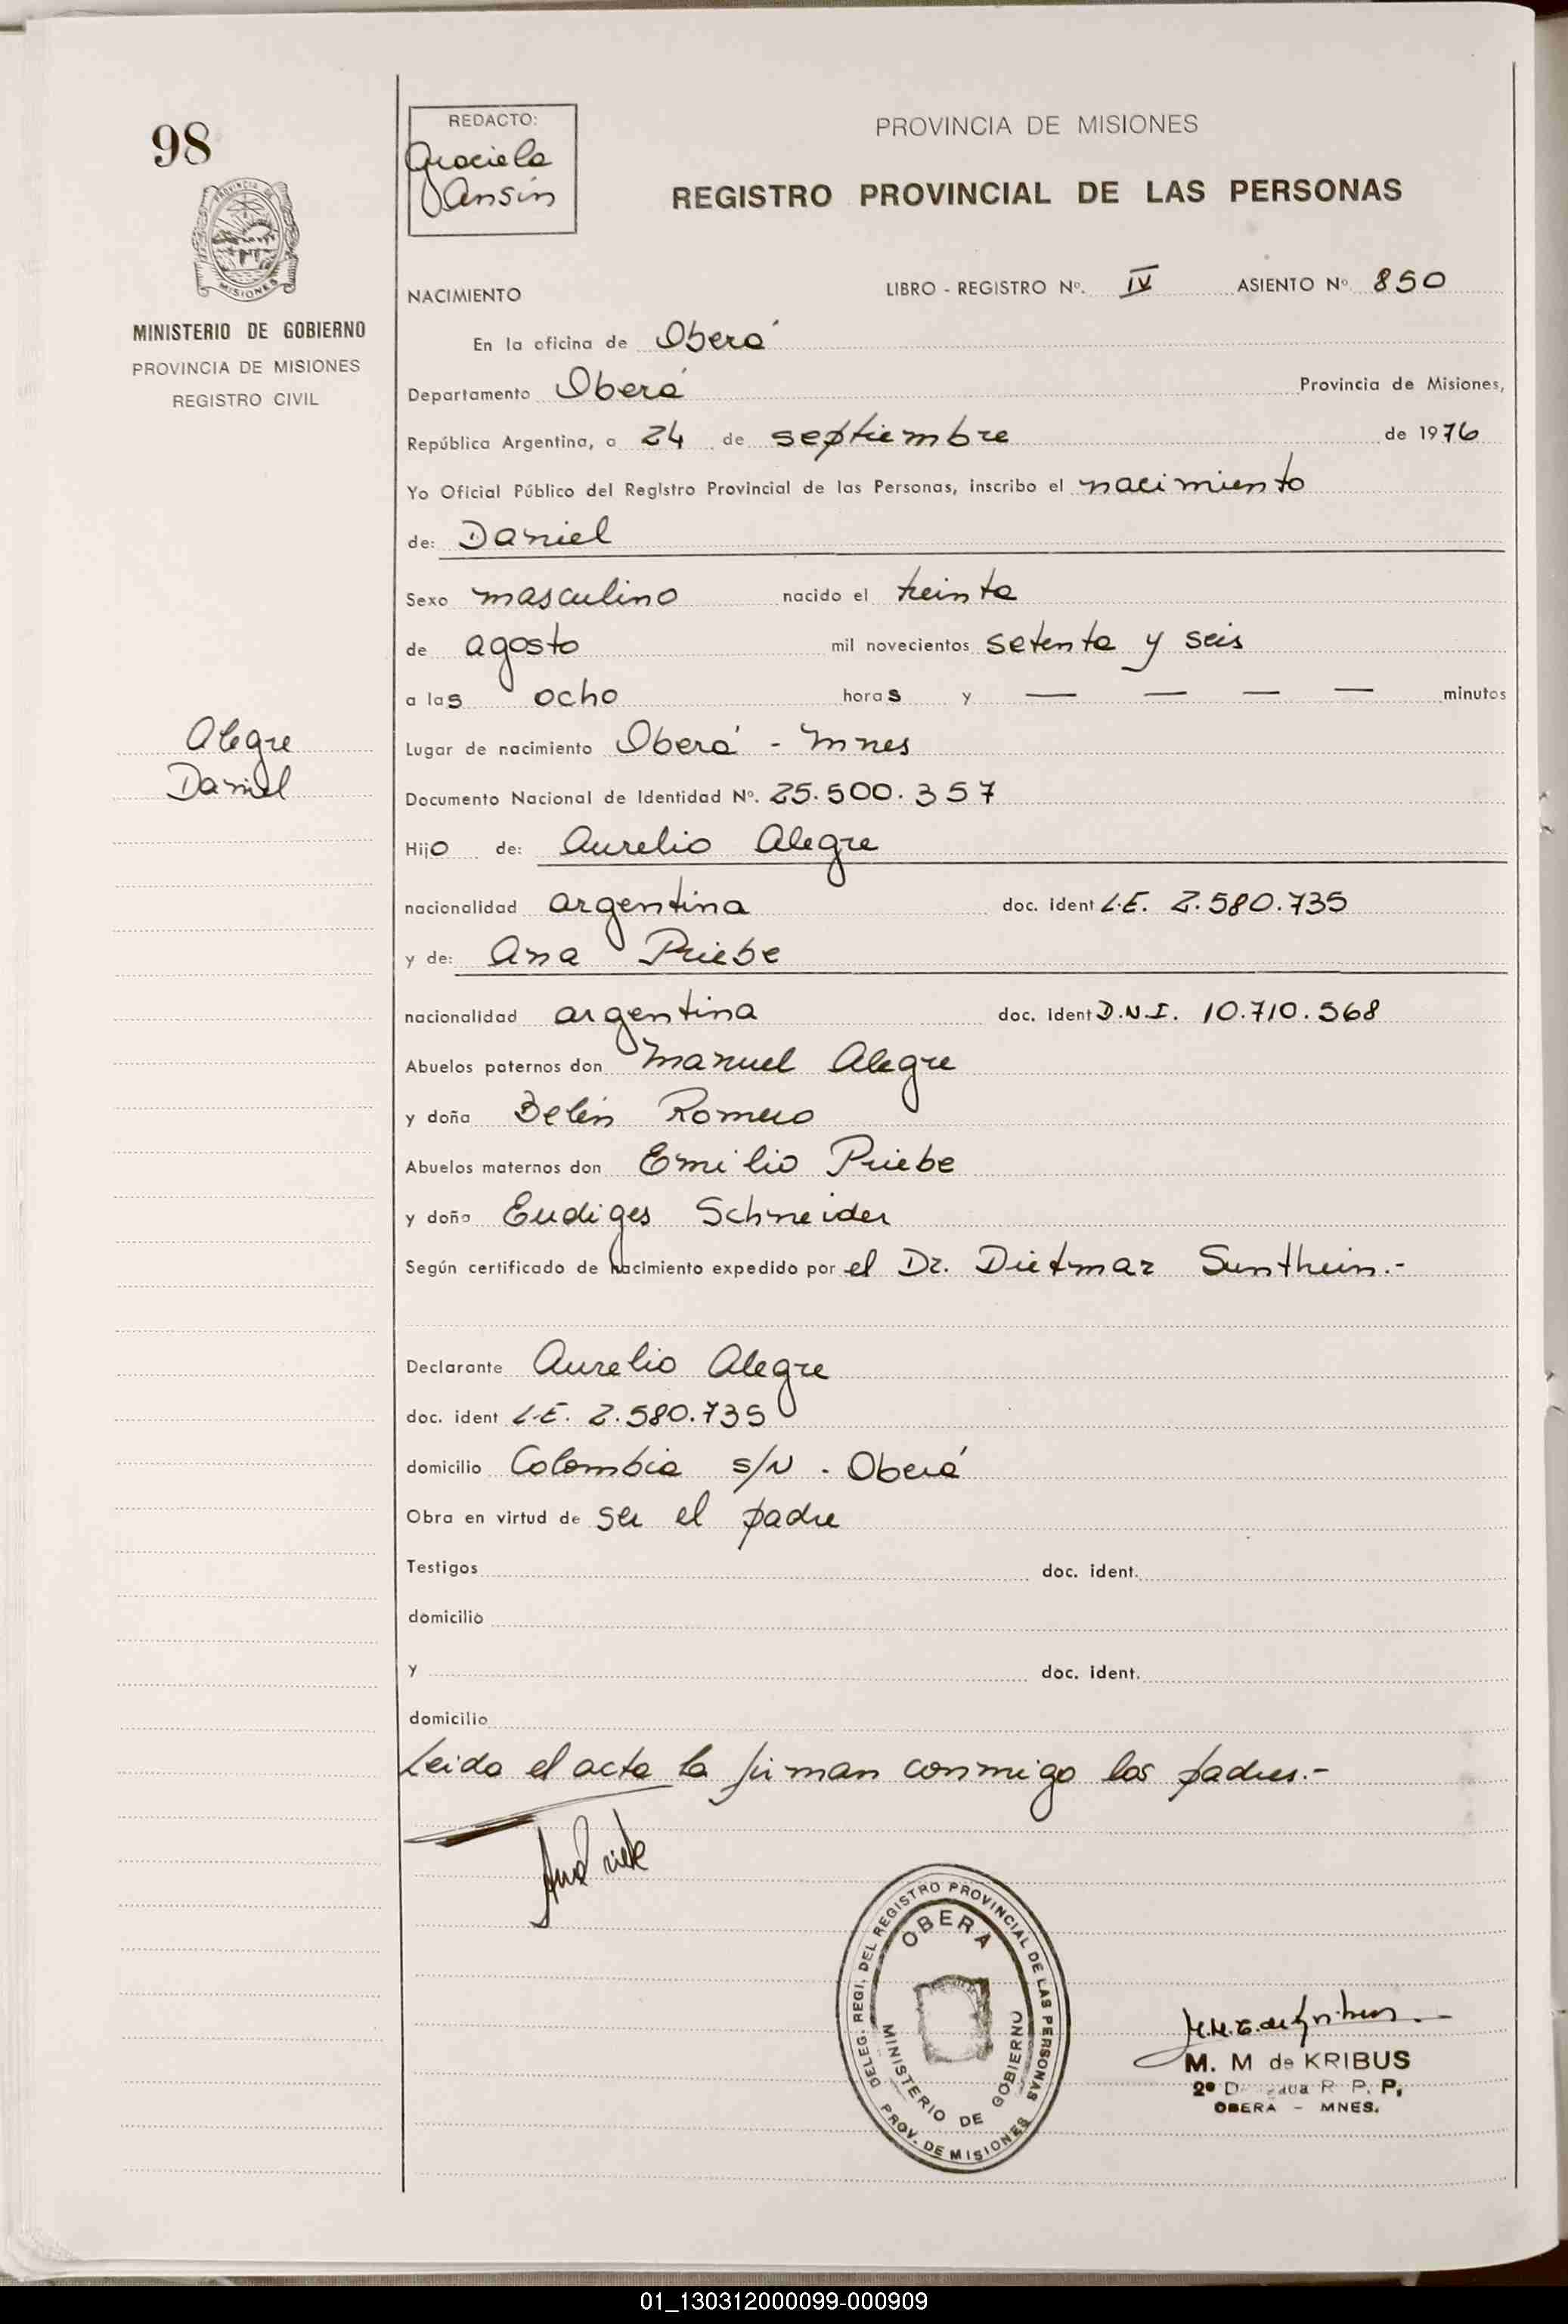 98
PROVINCIA DE
MISIONES
MINISTERIO DE GOBIERNO
PROVINCIA DE MISIONES
REGISTRO CIVIL
Alegre
Daniel
REDACTO:
Graciela
Ansín
PROVINCIA DE MISIONES
REGISTRO PROVINCIAL DE LAS PERSONAS
NACIMIENTO LIBRO - REGISTRO Nº. IV ASIENTO Nº 850
En la oficina de Oberá
Departamento Oberá Provincia de Misiones,
República Argentina, a 24 de septiembre de 1976
Yo Oficial Público del Registro Provincial de las Personas, inscribo el nacimiento
de: Daniel
Sexo masculino nacido el treinta
de agosto mil novecientos setenta y seis
a las ocho horas y — — — — minutos
Lugar de nacimiento Oberá - Mnes
Documento Nacional de Identidad Nº. 25.500.357
Hijo de: Aurelio Alegre
nacionalidad argentina doc. ident L.E. 2.580.735
y de: Ana Priebe
nacionalidad argentina doc. ident D.N.I. 10.710.568
Abuelos paternos don Manuel Alegre
y doña Belén Romero
Abuelos maternos don Emilio Priebe
y doña Eudiges Schneider
Según certificado de nacimiento expedido por el Dr. Dietmar Sunthein.-
Declarante Aurelio Alegre
doc. ident L.E. 2.580.735
domicilio Colombia s/N - Oberá
Obra en virtud de ser el padre
Testigos doc. ident.
domicilio
y doc. ident.
domicilio
Leida el acta la firman conmigo los padres.-
DELEG. REGI. DEL REGISTRO PROVINCIAL DE LAS PERSONAS
OBERA
MINISTERIO DE GOBIERNO
PROV. DE MISIONES
M. M de KRIBUS
2º R. P. P.
OBERA - MNES.
01_130312000099-000909